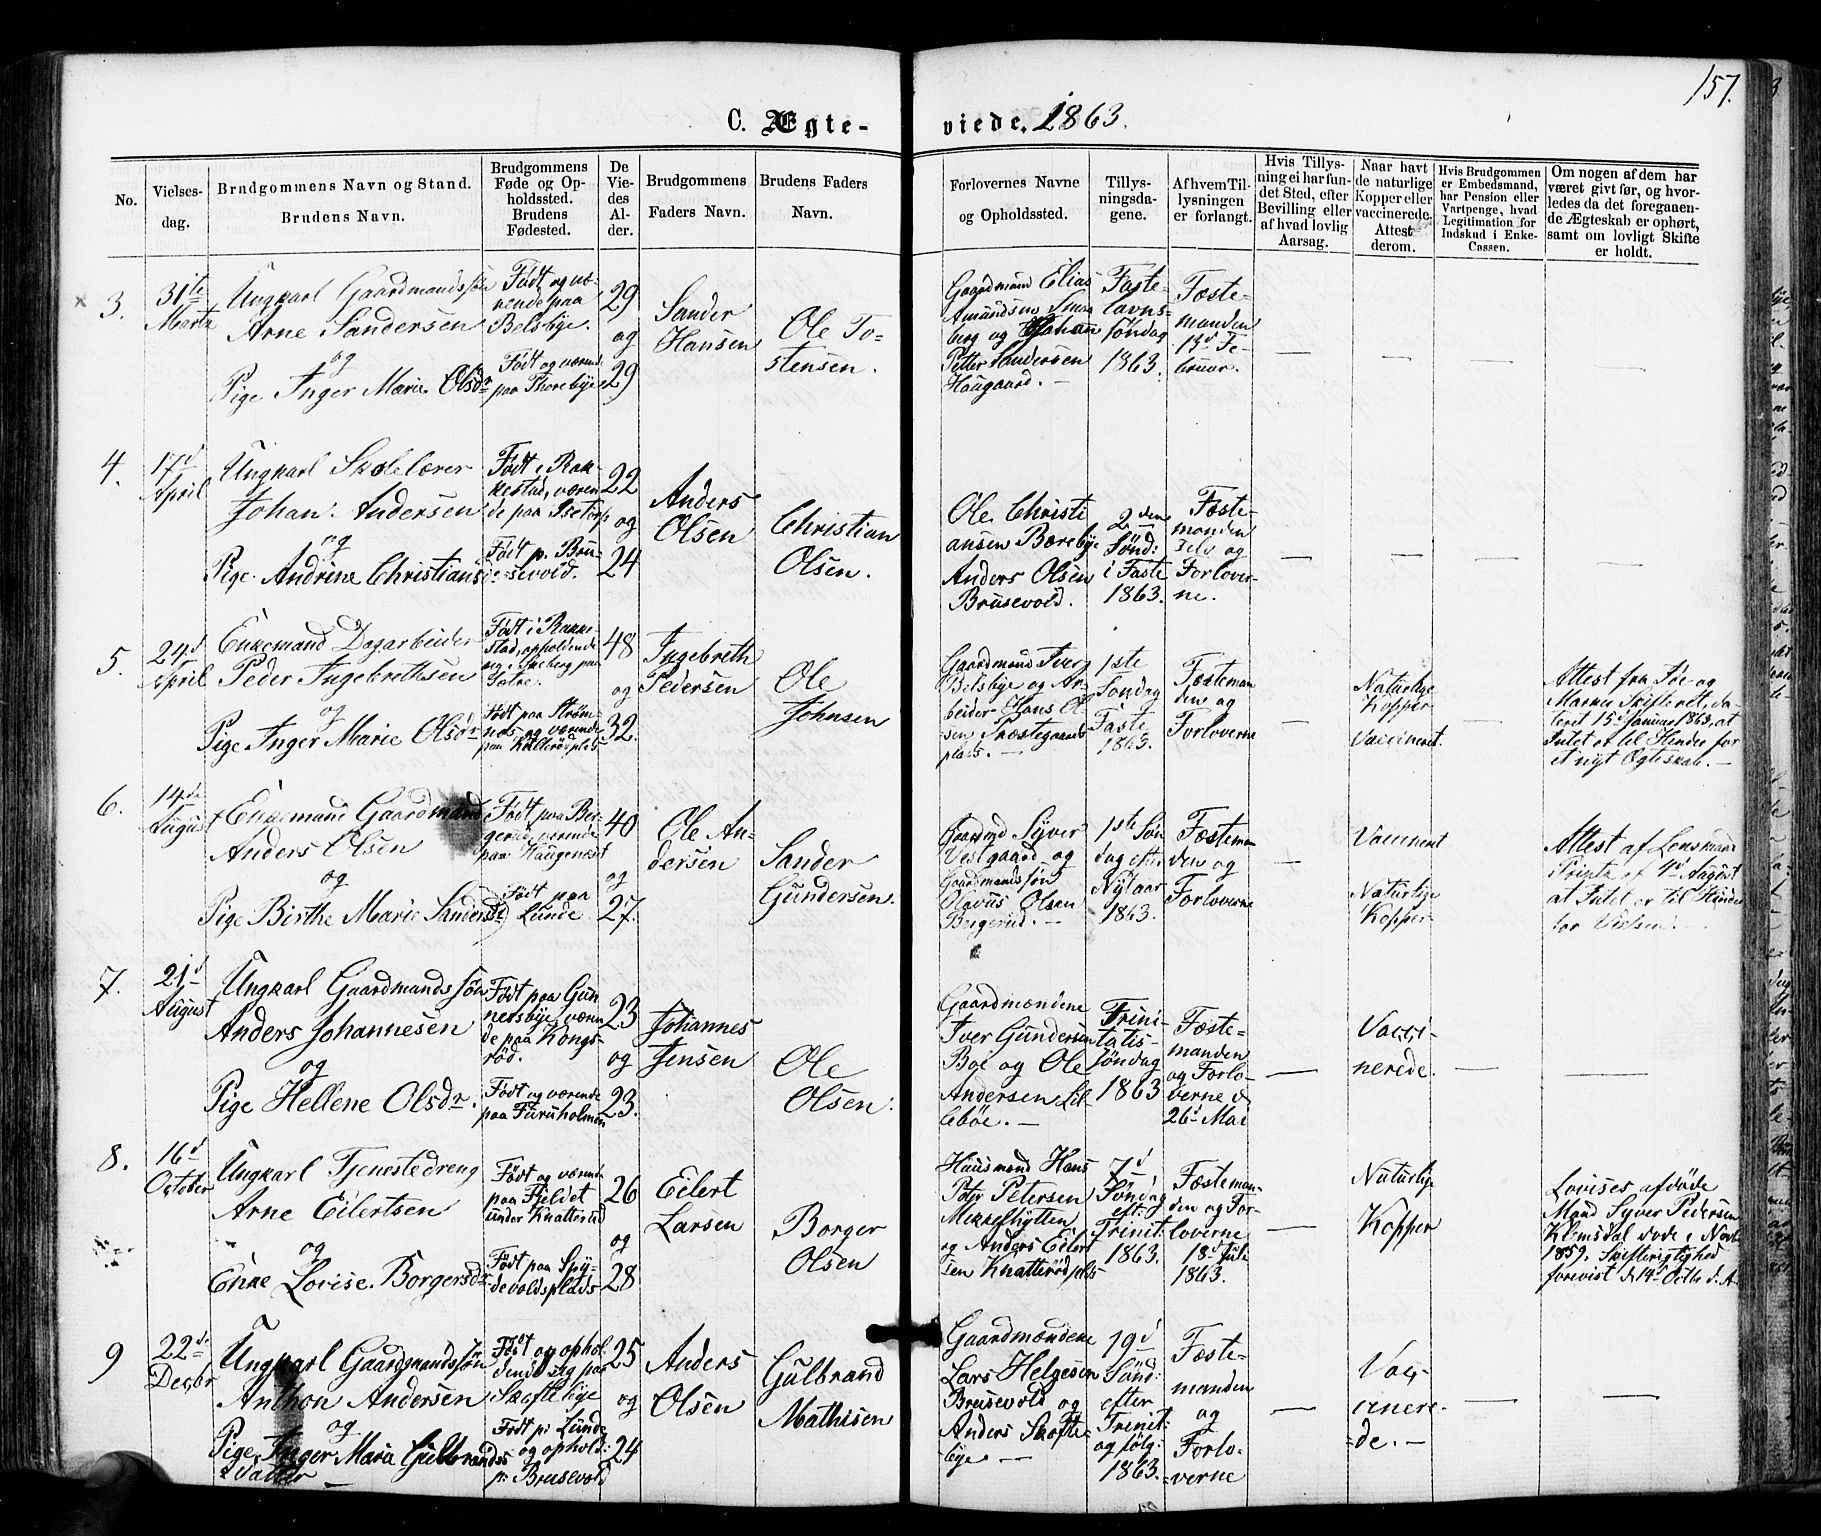 157.
C. Ægte-
viede. 1863.
No.
Vielses-
dag.
Brudgommens Navn og Stand.
Brudens Navn.
Brudgommens
Føde og Op-
holdssted.
Brudens
Fødested.
De
Vie-
des
Al-
der.
Brudgommens
Faders Navn.
Brudens Faders
Navn.
Forlovernes Navne
og Opholdssted.
Tillys-
ningsda-
gene.
Af hvem Til-
lysningen
er forlangt.
Hvis Tillys-
ning ei har fun-
det Sted, efter
Bevilling eller
af hvad lovlig
Aarsag.
Naar havt
de naturlige
Kopper eller
vaccinerede.
Attest
derom.
Hvis Brudgommen
er Embedsmand,
har Pension eller
Vartpenge, hvad
Legitimation for
Indskud i Enke-
Cassen.
Om nogen af dem har
været givt før, og hvor-
ledes da det foregaaen-
de Ægteskab er ophørt,
samt om lovligt Skifte
er holdt.
3.
31te
Martz
Ungkarl Gaardmandssøn
Arne Sandersen
og
Pige Inger Marie Olsdr
Født og væ-
rende paa
Belsbye.
Født og værend
paa Thorebye
29
og
29
Sander
Hansen
Ole To-
stensen.
Gaardmand Elias
Amundsen
berg og Johan
Petter Sandersen
Haugaard. —
Faste-
lavns-
søndag
1863.
Fæste-
manden
13d Fe-
bruar.
4.
17d
April
Ungkarl Skolelærer
Johan Andersen
og
Pige Andrine Christians
Født i Rak-
kestad, væren
de paa Isetorp
Født p. Bru-
sevold.
22
og
24
Anders
Olsen
Christian
Olsen.
Ole Christi
ansen Borebye
Anders Olsen
Brusevold.
2den
Sønd:
i Faste
1863.
Fæste-
manden
selv og
Forlover-
ne.
5.
24d
April
Enkemand Dagarbeider
Peder Ingebrethsen
og
Pige Inger Marie Olsdr
Født i Rakke-
stad, opholdende
sig i Skieberg paa
Født paa Strøm-
næs og værende
paa Katterødplds
48
og
32.
Ingebreth
Pedersen
Ole
Johnsen
Gaardmand Iver
Belsbye og Ar-
beider Hans Ol
sen Præstegaards
plads. —
1ste
Søndag
Faste
1863.
Fæsteman
den og
Forloverne
Naturlige
Kopper
Vaccineret.
Attest fra Søe og
Marker Skifteret, da-
teret 15d Januar 1863, at
Intet er til Hinder for
et nyt Egteskab. —
6.
14de
August
Enkemand Gaardmand
Anders Olsen
og
Pige Birthe Marie Sandersd
Født paa Ber-
gerud, værende
paa Haugenæst
Født paa
Lunde
40
og
27.
Ole An-
dersen
Sander
Gundersen.
Gaardmd Syver
Vestgaard og
Gaardmandssøn
Olavus Olsen
Bergerud. —
1ste Søn
dag efter
Nytaar
1863.
Fæsteman
den og
Forloverne
Vaccineret
Naturlige
Kopper
Attest af Lensmand
Printz af 4d August
at Intet er til Hinder
for Vielsen. —
7.
21d
August
Ungkarl Gaardmandssøn
Anders Johannesen
og
Pige Hellene Olsdr.
Født paa Gun
nersbye, væren
de paa Kongs-
rød.
Født og værende
paa Furuholmen
23
og
23.
Johannes
Jensen
Ole
Olsen.
Gaardmændene
Iver Gundersen
Bye og Ole
Andersen Lil-
lebøe. —
Trini-
tatis-
søndag
1863
Fæste-
manden
og Forlo-
verne d
26d Mai
Vacci-
nerede.
8.
16d
October
Ungkarl Tjenestedreng
Arne Eilertsen
og
Enke Lovise Borgersdr
Født og værende
paa Fjeldet
under Knatterud
Født paa Spy-
devoldsplads
26
og
28
Eilert
Larsen
Borger
Olsen
Huusmand Hans
Petersen
og Anders Eilert
sen Knatterødplds
7d
Søndag
eft:
Trinit
1863.
Fæsteman-
den og For-
loverne
18d Juli
1863.
Naturlige
Kopper
Lovises afdøde
Mand Syver Pedersen
Klemsdal døde i Novbr
1859, Skifterigtighed
forevist d. 14d Octbr d. A.
9
22d.
Decbr
Ungkarl Gaardmandssøn
Anthon Andersen
og
Pige Inger Maria Gulbrands
datter —
Født og ophol
dende sig paa
Skoftebye
Født p: Lunde
og ophold:
p: Brusevold
25
og
24
Anders
Olsen
Gulbrand
Mathisen
Gaardmændene
Lars Helgesen
Brusevold og
Anders Skofte-
bye. —
19d
Sønd:
efter
Trinit:
og følg:
1863.
Fæste-
manden
og
Forlo-
verne
Vacc-
inere-
de. —